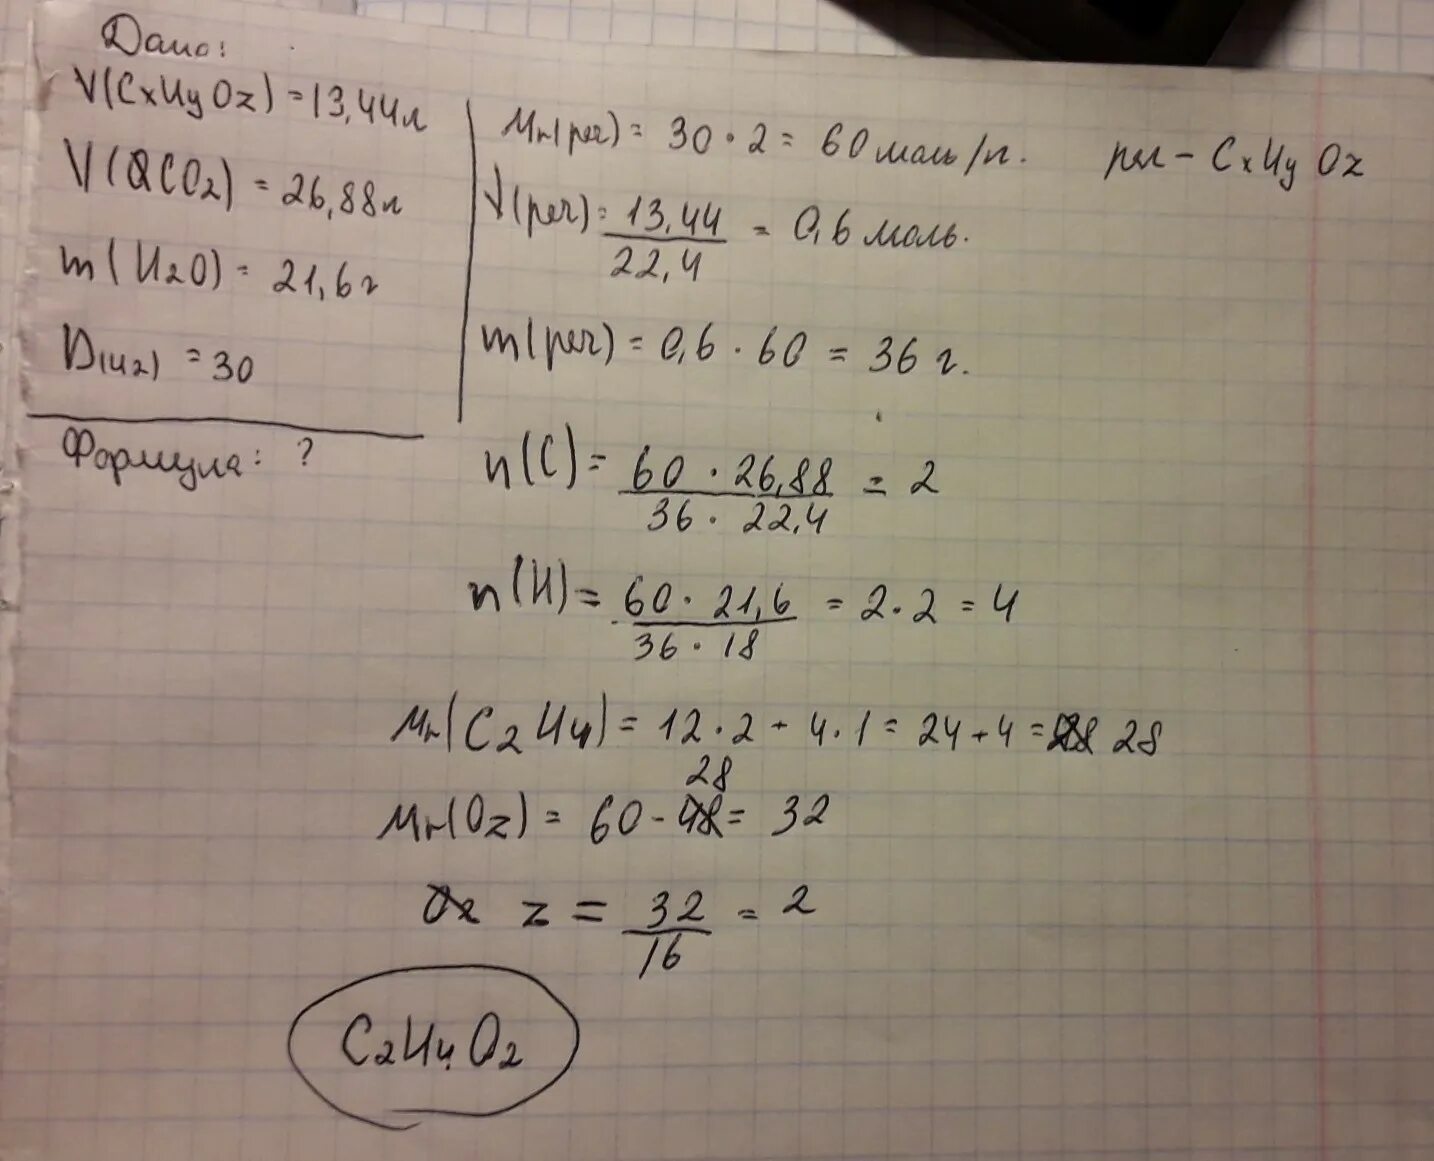 Дано:
V(CxHyOz) = 13,44л
V(CO2) = 26,88л
m(H2O) = 21,6г
D(H2) = 30
Формула: ?
Mr( ) = 30 · 2 = 60 моль/г. - CxHyOz
V( ) = 13,44 / 22,4 = 0,6 моль.
m( ) = 0,6 · 60 = 36 г.
n(C) = 60 · 26,88 / 36 · 22,4 = 2
n(H) = 60 · 21,6 / 36 · 18 = 2 · 2 = 4
Mr(C2H4) = 12 · 2 + 4 · 1 = 24 + 4 = 28
Mr(Oz) = 60 - 28 = 32
z = 32 / 16 = 2
C2H4O2